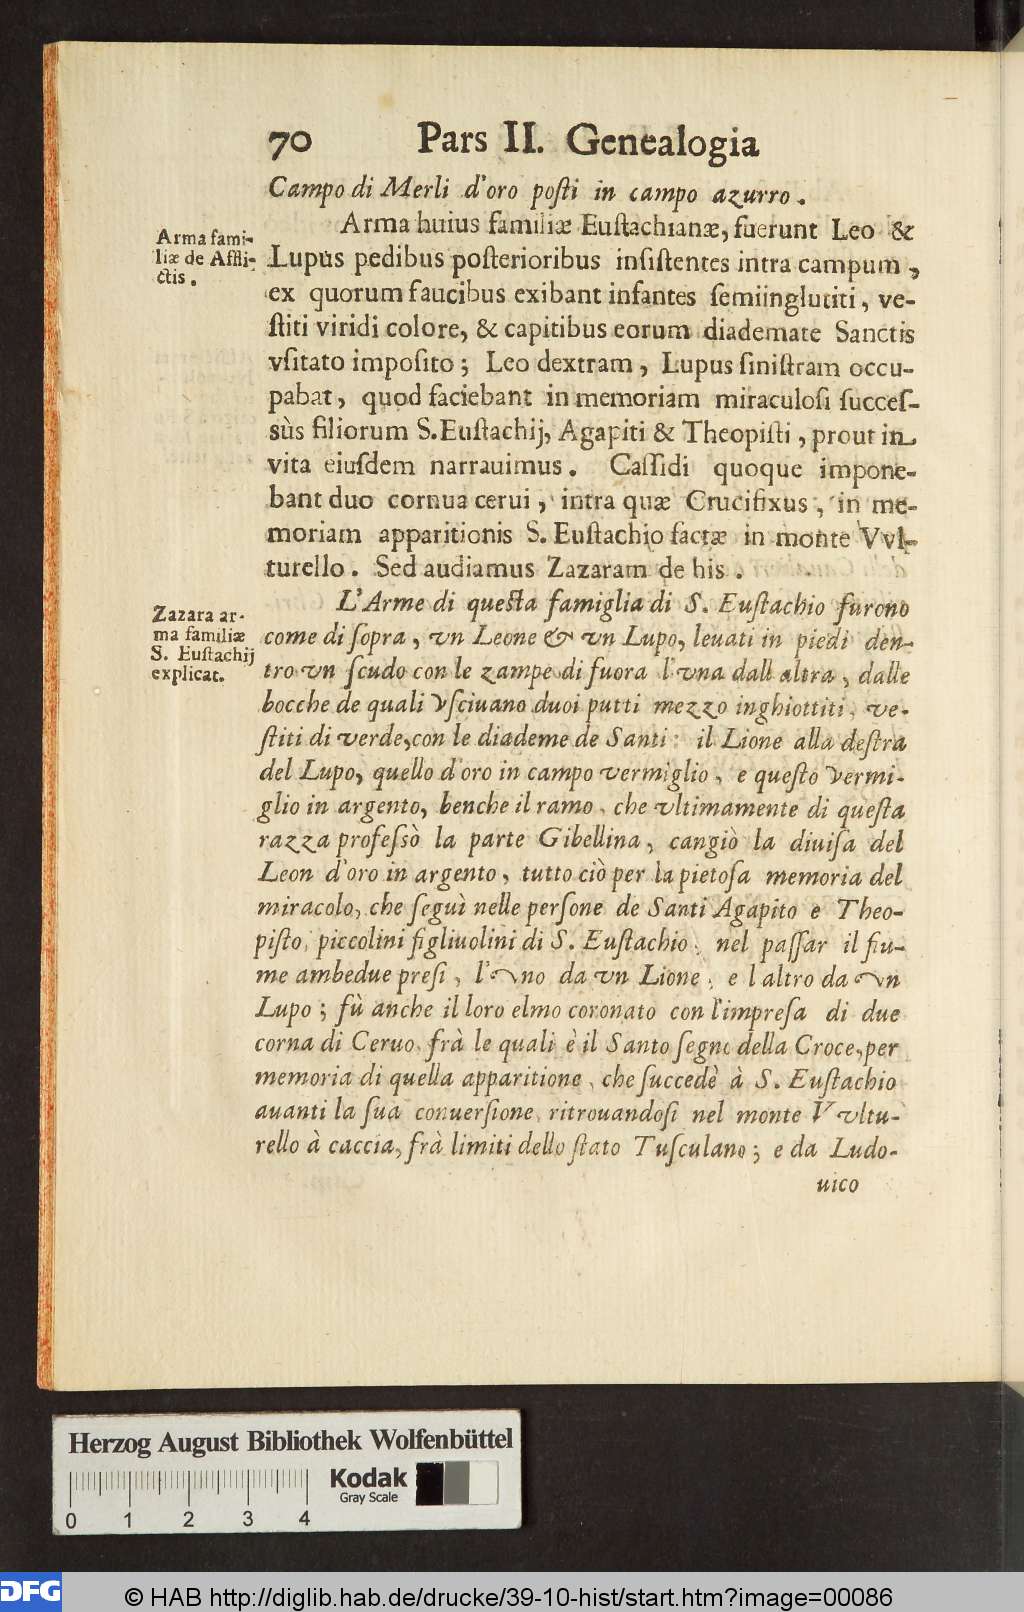 70 Pars II. Genealogia
Campo di Merli d'oro poſti in campo azurro.
Arma fami-
liæ de Affli-
ctis.
Arma huius familiæ Euſtachianæ, fuerunt Leo &
Lupus pedibus poſterioribus inſiſtentes intra campum,
ex quorum faucibus exibant infantes ſemiinglutiti, ve-
ſtiti viridi colore, & capitibus eorum diademate Sanctis
vſitato impoſito; Leo dextram, Lupus ſiniſtram occu-
pabat, quod faciebant in memoriam miraculoſi ſucceſ-
sùs filiorum S. Euſtachij, Agapiti & Theopiſti, prout in
vita eiuſdem narrauimus. Caſſidi quoque impone-
bant duo cornua cerui, intra quæ Crucifixus, in me-
moriam apparitionis S. Euſtachio factæ in monte Vvl-
turello. Sed audiamus Zazaram de his.
Zazara ar-
ma familiæ
S. Euſtachij
explicat.
L'Arme di queſta famiglia di S. Euſtachio furono
come di ſopra, vn Leone & vn Lupo, leuati in piedi den-
tro vn ſcudo con le zampe di fuora l'vna dall altra, dalle
bocche de quali vſciuano duoi putti mezzo inghiottiti, ve-
ſtiti di verde, con le diademe de Santi: il Lione alla deſtra
del Lupo, quello d'oro in campo vermiglio, e queſto vermi-
glio in argento, benche il ramo, che vltimamente di queſta
razza profeſsò la parte Gibellina, cangiò la diuiſa del
Leon d'oro in argento, tutto ciò per la pietoſa memoria del
miracolo, che ſeguì nelle perſone de Santi Agapito e Theo-
piſto, piccolini figliuolini di S. Euſtachio, nel paſſar il fiu-
me ambedue preſi, l'vno da vn Lione, e l altro da vn
Lupo; fù anche il loro elmo coronato con l'impreſa di due
corna di Ceruo, frà le quali è il Santo ſegno della Croce, per
memoria di quella apparitione, che ſuccedè à S. Euſtachio
auanti la ſua conuerſione, ritrouandoſi nel monte Vvltu-
rello à caccia, frà limiti dello ſtato Tuſculano; e da Ludo-
uico
Herzog August Bibliothek Wolfenbüttel
Kodak
Gray Scale
0 1 2 3 4
DFG © HAB http://diglib.hab.de/drucke/39-10-hist/start.htm?image=00086